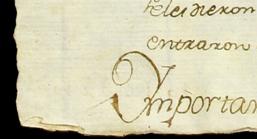 se le dieron
entraron
Importan